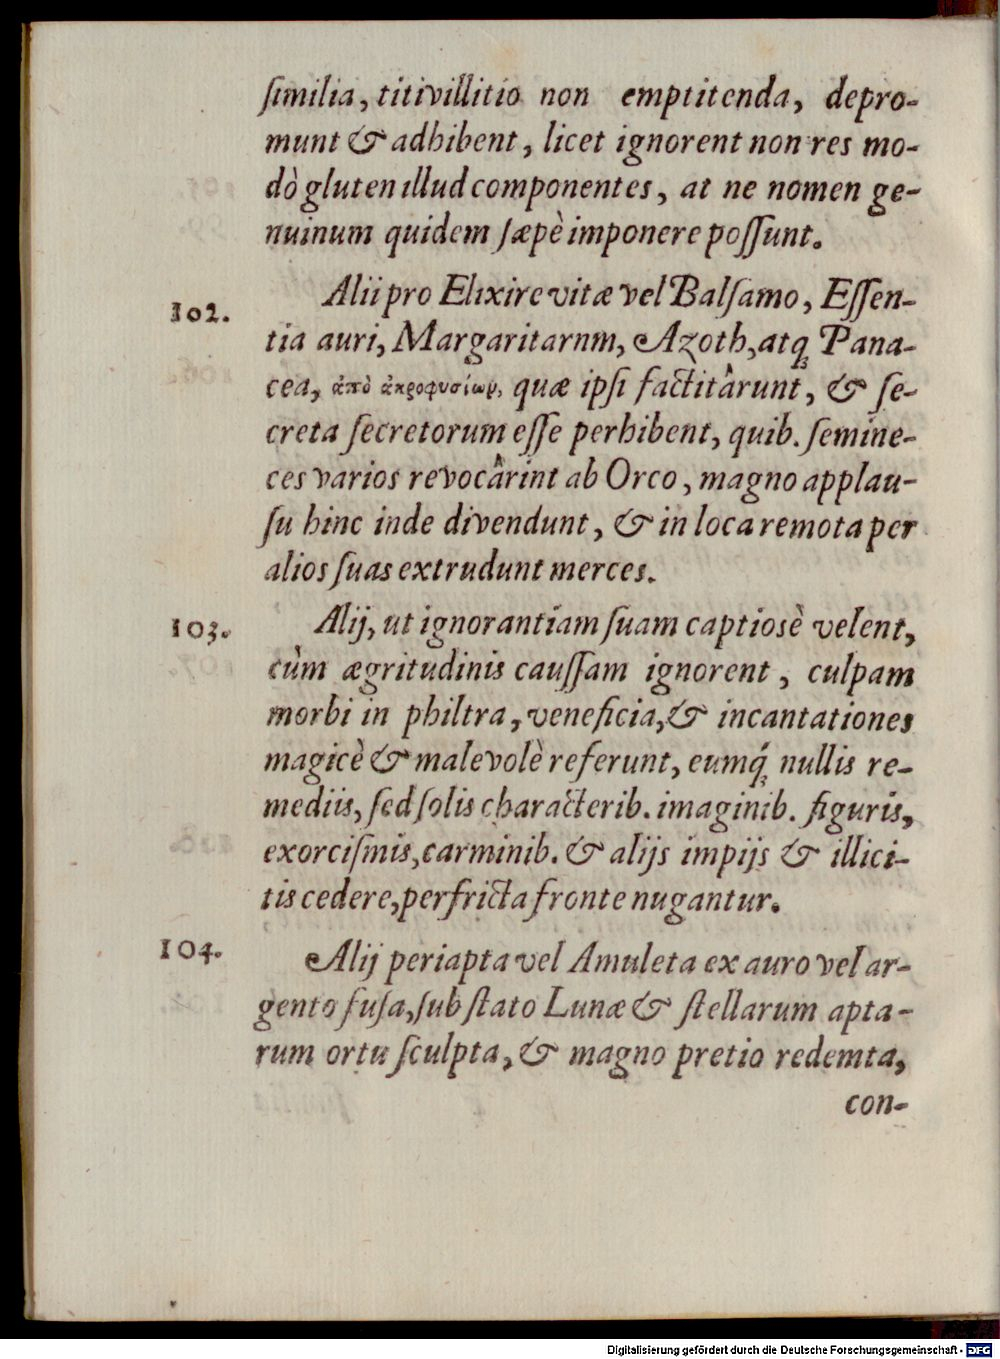 ſimilia, titivillitio non emptitenda, depro-
munt & adhibent, licet ignorent non res mo-
dò gluten illud componentes, at ne nomen ge-
nuinum quidem ſæpè imponere poſſunt.
102. Alii pro Elixire vitæ vel Balſamo, Eſſen-
tia auri, Margaritarnm, Azoth, atq́; Pana-
cea, ἀπὸ ἀκροφυσίων, quæ ipſi factitârunt, & ſe-
creta ſecretorum eſſe perhibent, quib. ſemine-
ces varios revocârint ab Orco, magno applau-
ſu hinc inde divendunt, & in loca remota per
alios ſuas extrudunt merces.
103. Alij, ut ignorantiam ſuam captiosè velent,
cùm ægritudinis cauſſam ignorent, culpam
morbi in philtra, veneficia, & incantationes
magicè & malevolè referunt, eumq́; nullis re-
mediis, ſed ſolis characterib. imaginib. figuris,
exorciſmis, carminib. & alijs impijs & illici-
tis cedere, perfricta fronte nugantur.
104. Alij periapta vel Amuleta ex auro vel ar-
gento fuſa, ſub ſtato Lunæ & ſtellarum apta-
rum ortu ſculpta, & magno pretio redemta,
con-
Digitalisierung gefördert durch die Deutsche Forschungsgemeinschaft - DFG